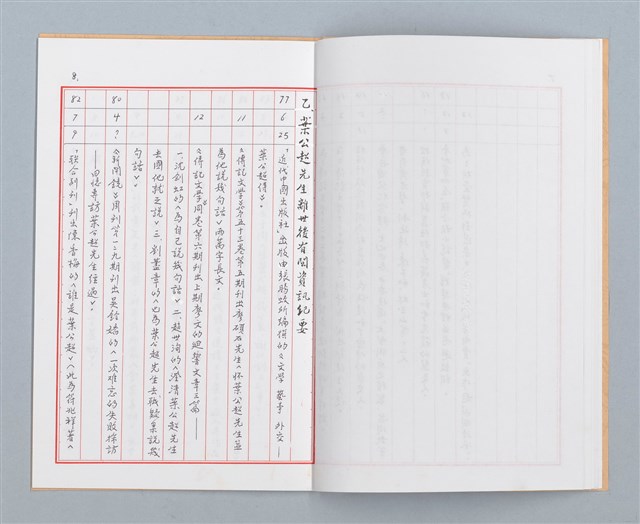 8.
乙、葉公超先生離世後有關資訊紀要
77 6 25 「近代中國出版社」出版由張騰蛟所編撰的《文學 藝事 外交——
葉公超傳》。
11 《傳記文學》第五十三卷第五期刊出廖碩石先生《懷葉公超先生並
為他說幾句話》兩萬字長文。
12 《傳記文學》同卷第六期刊出上期廖文的迴響文章三篇——
一沈劍虹的《為自己說幾句話》二、趙世洵的《澄清葉公超先生
去國他就之說》三、劉藎章的《也為葉公超先生去職
句話》。
80 4 ? 《新聞鏡》周刊第一二九期刊出吳鈴嬌的《一次難忘的失敗採訪
——回憶專訪葉公超先生經過》。
82 7 9 「聯合副刊」刊出陳香梅的《誰是葉公超》《此為符兆祥著《